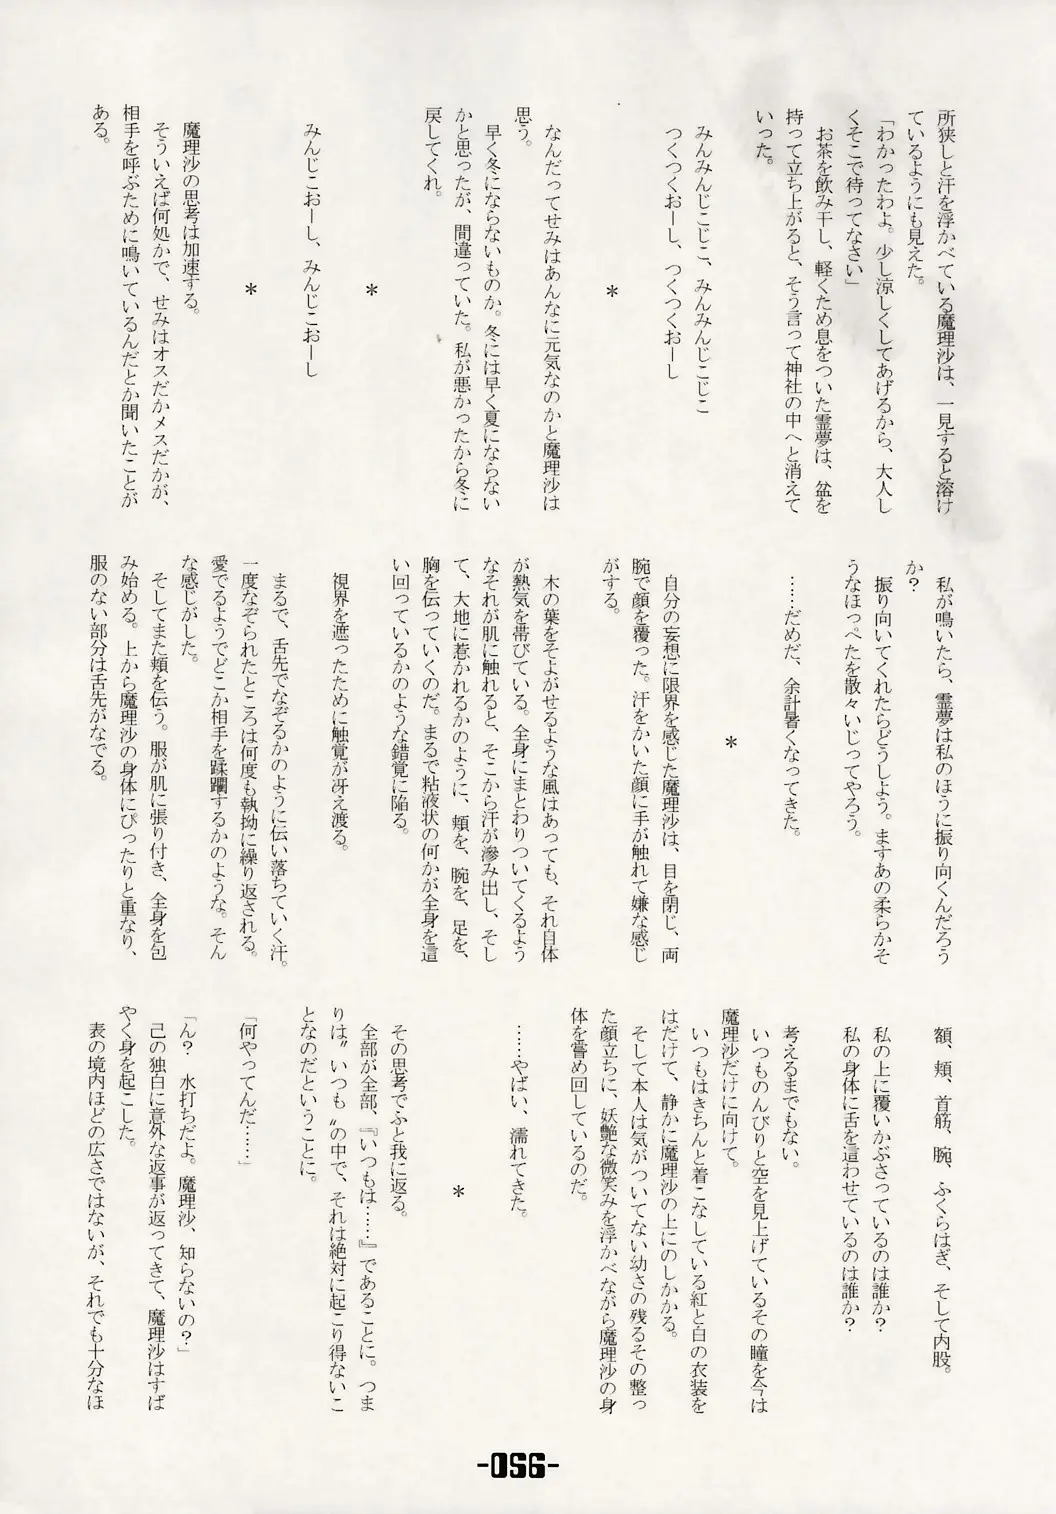 所狭しと汗を浮かべている魔理沙は、一見すると溶け
ているようにも見えた。
「わかったわよ。少し涼しくしてあげるから、大人し
くそこで待ってなさい」
お茶を飲み干し、軽くため息をついた霊夢は、盆を
持って立ち上がると、そう言って神社の中へと消えて
いった。
みんみんじこじこ、みんみんじこじこ
つくつくおーし、つくつくおーし
＊
なんだってせみはあんなに元気なのかと魔理沙は
思う。
早く冬にならないものか。冬には早く夏にならない
かと思ったが、間違っていた。私が悪かったから冬に
戻してくれ。
＊
みんじこおーし、みんじこおーし
＊
魔理沙の思考は加速する。
そういえば何処かで、せみはオスだかメスだかが、
相手を呼ぶために鳴いているんだとか聞いたことが
ある。
私が鳴いたら、霊夢は私のほうに振り向くんだろう
か?
振り向いてくれたらどうしよう。ますあの柔らかそ
うなほっぺたを散々いじってやろう。
……だめだ、余計暑くなってきた。
＊
自分の妄想に限界を感じた魔理沙は、目を閉じ、両
腕で顔を覆った。汗をかいた顔に手が触れて嫌な感じ
がする。
木の葉をそよがせるような風はあっても、それ自体
が熱気を帯びている。全身にまとわりついてくるよう
なそれが肌に触れると、そこから汗が滲み出し、そし
て、大地に惹かれるかのように、頬を、腕を、足を、
胸を伝っていくのだ。まるで粘液状の何かが全身を這
い回っているかのような錯覚に陥る。
視界を遮ったために触覚が冴え渡る。
まるで、舌先でなぞるかのように伝い落ちていく汗。
一度なぞられたところは何度も執拗に繰り返される。
愛でるようでどこか相手を蹂躙するかのような。そん
な感じがした。
そしてまた頬を伝う。服が肌に張り付き、全身を包
み始める。上から魔理沙の身体にぴったりと重なり、
服のない部分は舌先がなでる。
額、頬、首筋、腕、ふくらはぎ、そして内股。
私の上に覆いかぶさっているのは誰か?
私の身体に舌を這わせているのは誰か?
考えるまでもない。
いつものんびりと空を見上げているその瞳を今は
魔理沙だけに向けて。
いつもはきちんと着こなしている紅と白の衣装を
はだけて、静かに魔理沙の上にのしかかる。
そして本人は気がついてない幼さの残るその整っ
た顔立ちに、妖艶な微笑みを浮かべながら魔理沙の身
体を嘗め回しているのだ。
……やばい、濡れてきた。
＊
その思考でふと我に返る。
全部が全部、『いつもは……』であることに。つま
りは〝いつも〟の中で、それは絶対に起こり得ないこ
となのだということに。
「何やってんだ……」
「ん? 水打ちだよ。魔理沙、知らないの?」
己の独白に意外な返事が返ってきて、魔理沙はすば
やく身を起こした。
表の境内ほどの広さではないが、それでも十分なほ
-056-